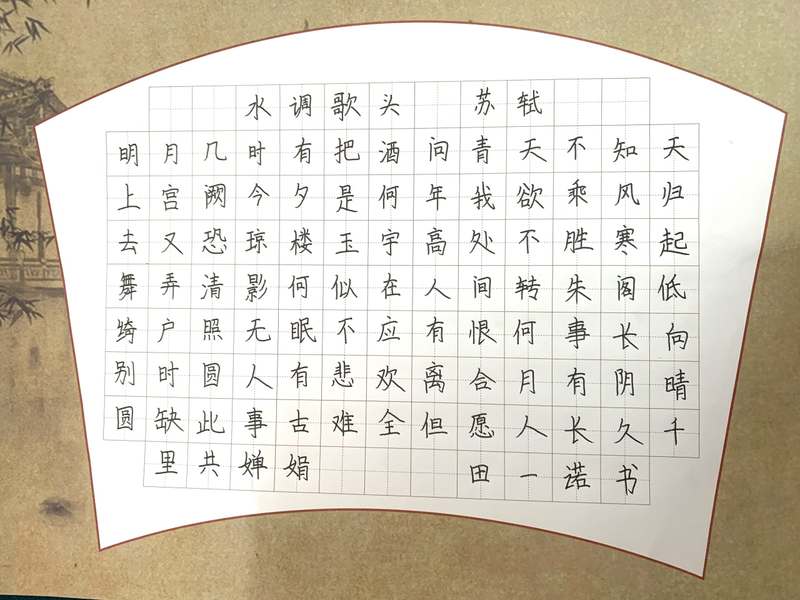 水调歌头 苏轼
明月几时有把酒问青天不知天
上宫阙今夕是何年我欲乘风归
去又恐琼楼玉宇高处不胜寒起
舞弄清影何似在人间转朱阁低
绮户照无眠不应有恨何事长向
别时圆人有悲欢离合月有阴晴
圆缺此事古难全但愿人长久千
里共婵娟 田一诺书